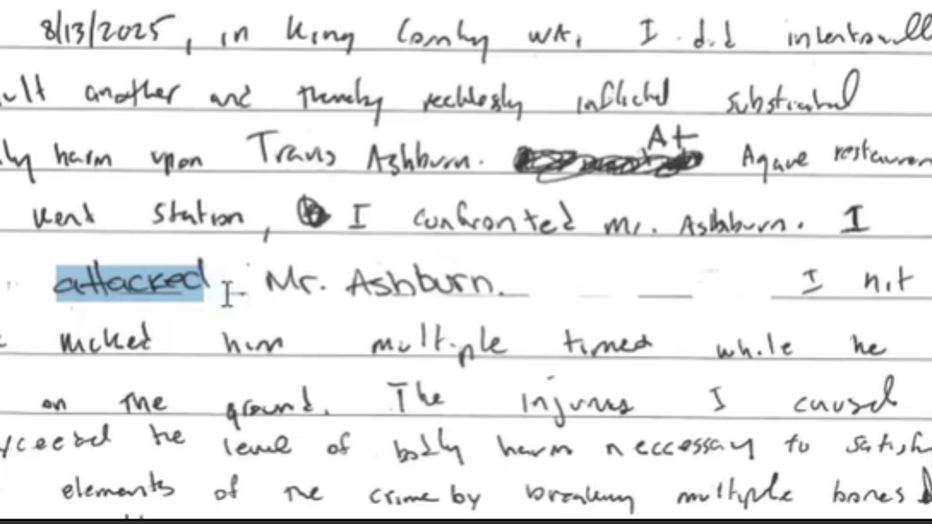 8/13/2025, in King County WA. I did intentionall
ult another and thereby recklessly inflicted substantial
ly harm upon Travis Ashburn. At Agave restauran
Kent Station, I confronted Mr. Ashburn. I
attacked Mr. Ashburn. I hit
kicked him multiple times while he
on the ground. The injuries I caused
xceed the level of bodily harm neccessary to satisfy
elements of the crime by breaking multiple bones